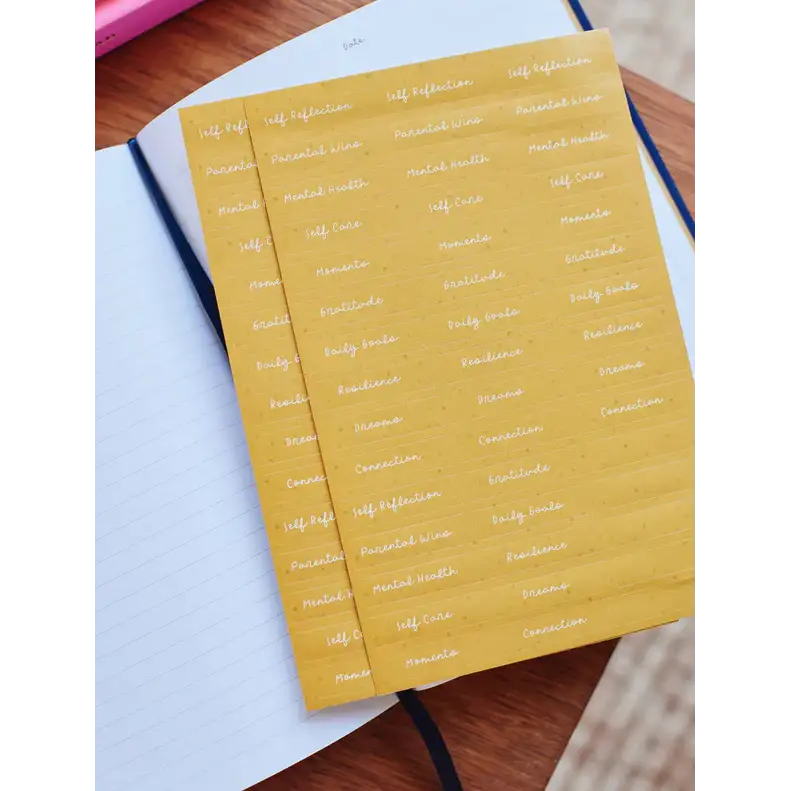 Date
Self Reflection Self Reflection Self Reflection
Parental Wins Parental Wins Parental Wins
Mental Health Mental Health Mental Health
Self Care Self Care Self Care
Moments Moments Moments
Gratitude Gratitude Gratitude
Daily Goals Daily Goals Daily Goals
Resilience Resilience Resilience
Dreams Dreams Dreams
Connection Connection Connection
Self Reflection Gratitude
Parental Wins Daily Goals
Mental Health Resilience
Self Care Dreams
Moments Connection
Self Refl
Parenta
Mental
Self C
Mom
Gratit
Daily G
Resili
Drea
Connec
Self Refl
Parental
Mental H
Self C
Momen